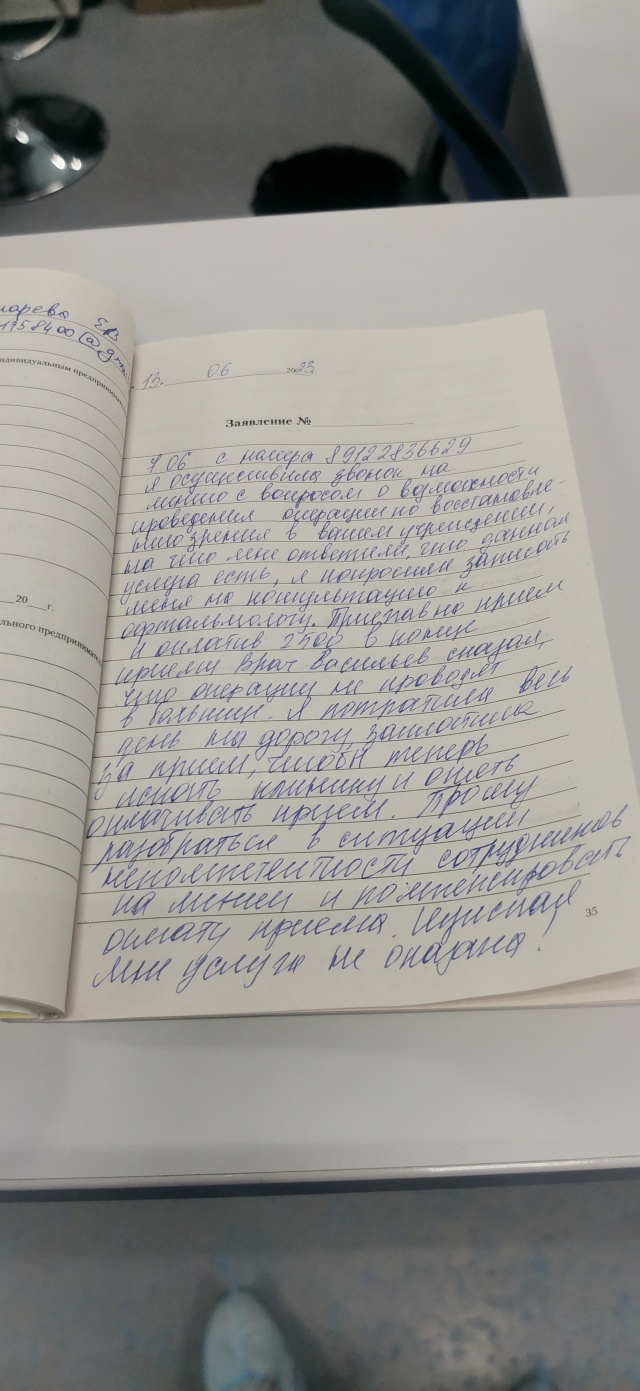 ЕВ
1758400@gma
индивидуальным предпринимате
20 г.
льного предпринимате
13. 06 2023
Заявление №
7 06 с номера 89122836629
я осуществила звонок на
линию с вопросом о возможности
проведения операции по восстановле-
нию зрения в вашем учреждении,
на что мне ответили, что данная
услуга есть, я попросила записать
меня на консультацию к
офтальмологу. Приехав на прием
и оплатив 2500 в конце
приема врач Васильев сказал,
что операции не проводят
в больнице. Я потратила весь
день на дорогу, заплатила
за прием, чтобы теперь
искать клинику и опять
оплачивать прием. Прошу
разобраться в ситуации
некомпетентности сотрудников
на линии и компенсировать
оплату приема. Нужная
мне услуга не оказана!
35